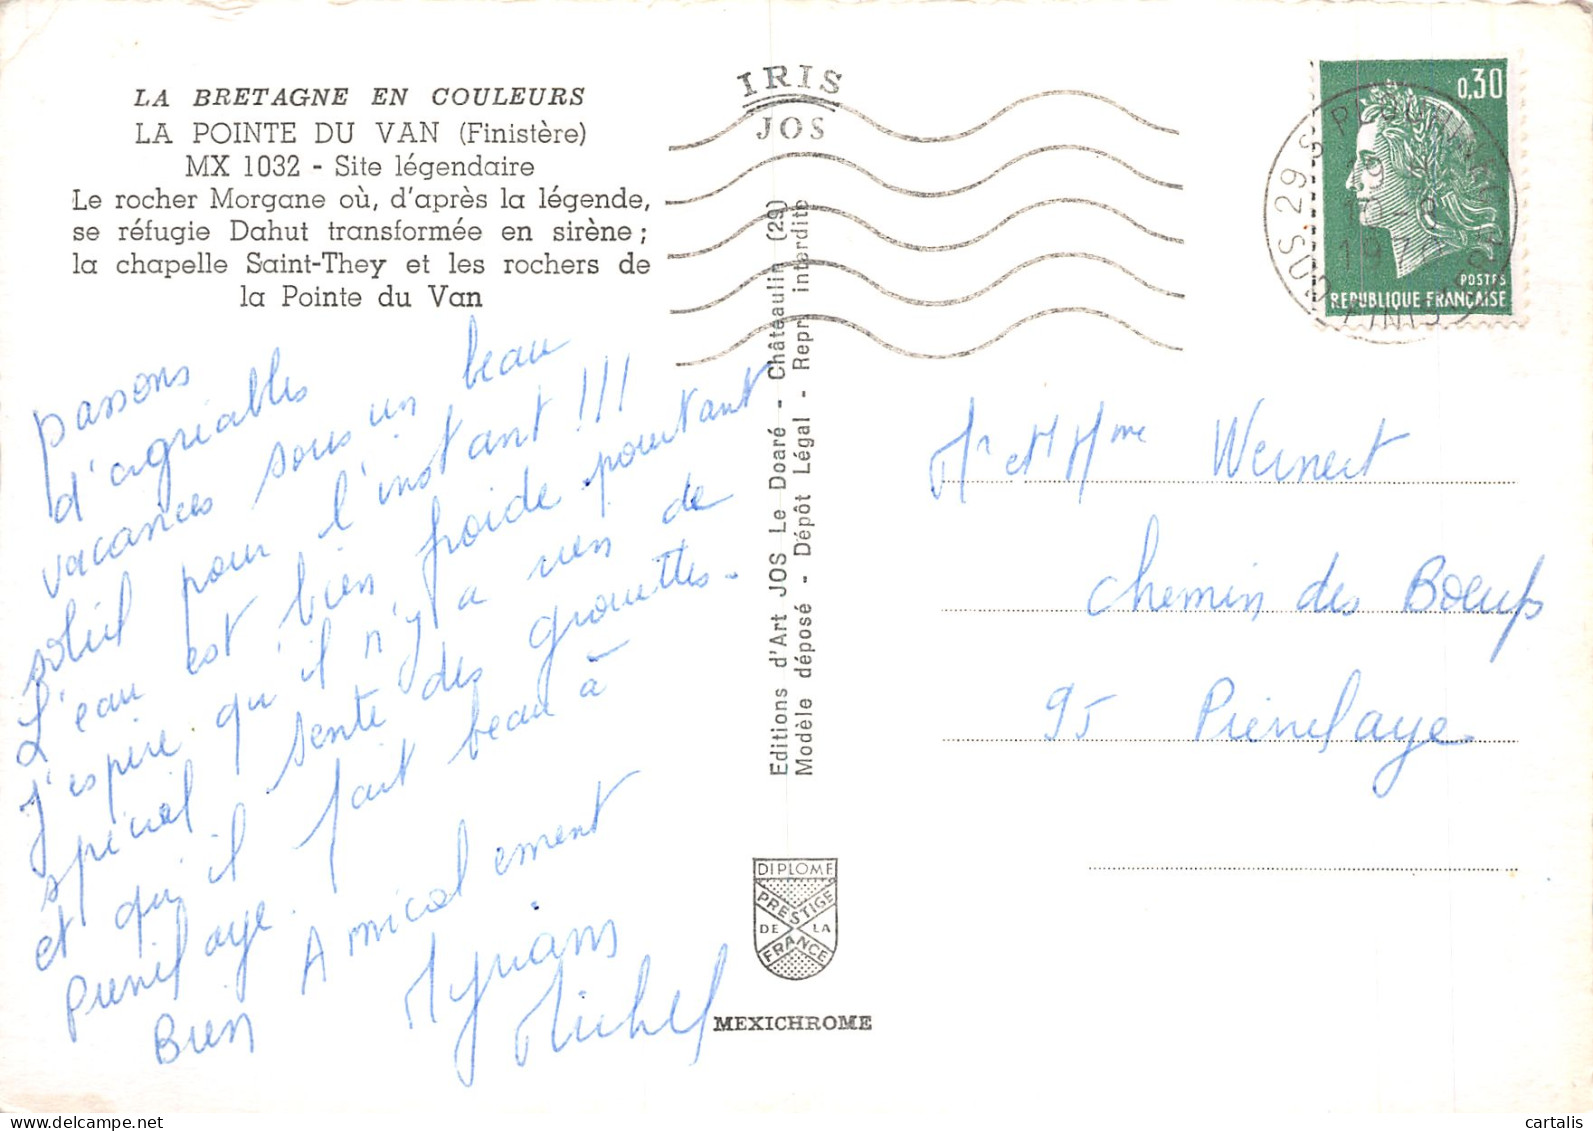 LA BRETAGNE EN COULEURS
LA POINTE DU VAN (Finistère)
MX 1032 - Site légendaire
Le rocher Morgane où, d'après la légende,
se réfugie Dahut transformée en sirène ;
la chapelle Saint-They et les rochers de
la Pointe du Van
passons
d'agréables
vacances sous un beau
soleil pour l'instant !!!
L'eau est bien froide pourtant
J'espère qu'il n'y a rien de
spécial sente des grouettes.
et qu'il fait beau à
Pierrelaye.
Bien Amicalement
Myriam
Michel
IRIS
JOS
Editions d'Art JOS Le Doaré - Châteaulin (29)
Modèle déposé - Dépôt Légal - Repr. interdite
DIPLOME
PRESTIGE
DE LA
FRANCE
MEXICHROME
0,30
POSTES
REPUBLIQUE FRANÇAISE
Mr et Mme Wernert
Chemin des Boeufs
95 Pierrelaye
cartalis